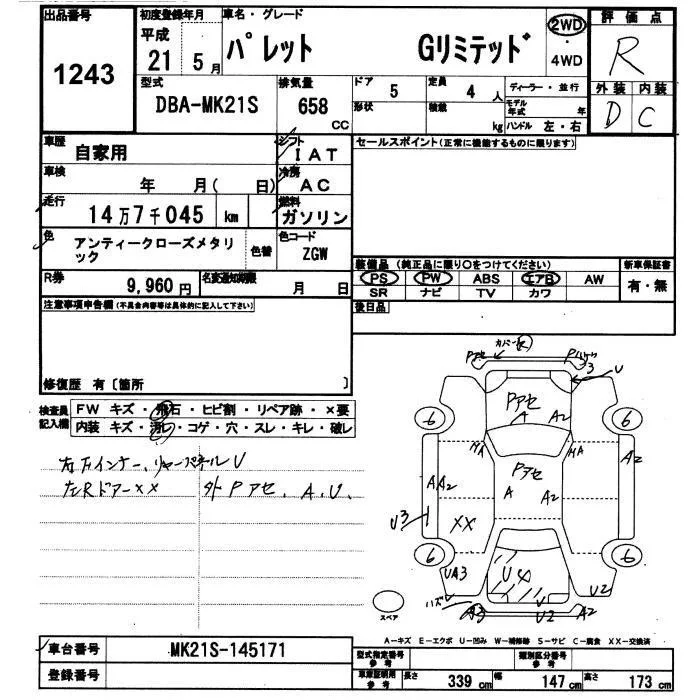 出品番号
1243
初度登録年月
平成
21 5月
車名・グレード
パレット Gリミテッド
2WD
・
4WD
評価点
R
外装 内装
D C
型式
DBA-MK21S
排気量
658
CC
ドア 5
形状
定員 4人
積載 kg
ディーラー・並行
モデル年式 年
ハンドル 左・右
車歴
自家用
シフト
IAT
車検
年 月( 日)
冷房
AC
走行
14万7千045 km
燃料
ガソリン
色
アンティークローズメタリ
ック
色替
色コード
ZGW
R券
9,960円
名変通知期限
月 日
セールスポイント(正常に機能するものに限ります)
装備品 (純正品に限り〇をつけてください)
PS PW ABS エアB AW
SR ナビ TV カワ
新車保証書
有・無
後日品
注意事項申告欄(不具合内容等は具体的に記入して下さい)
修復歴 有〔箇所 〕
検査員
記入欄
FW キズ・飛石・ヒビ割・リペア跡・×要
内装 キズ・汚れ・コゲ・穴・スレ・キレ・破レ
左Rドアー××
外Pアセ、A、U、
Pアセ
3
U
Pアセ
A
A2
6
6
Pアセ
A
A2
A2
AA2
U3
XX
6
6
UA3
U2
A3
U
A2
スペア
A−キズ E−エクボ U−凹み W−補修跡 S−サビ C−腐食 XX−交換済
車台番号
MK21S-145171
登録番号
型式指定番号
参考
類別区分番号
参考
車庫証明用
参考
長さ 339cm 幅 147cm 高さ 173cm